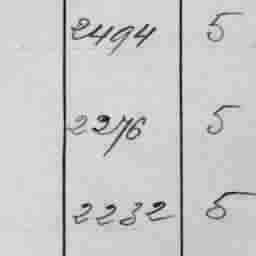 2494 5
2276 5
2232 5